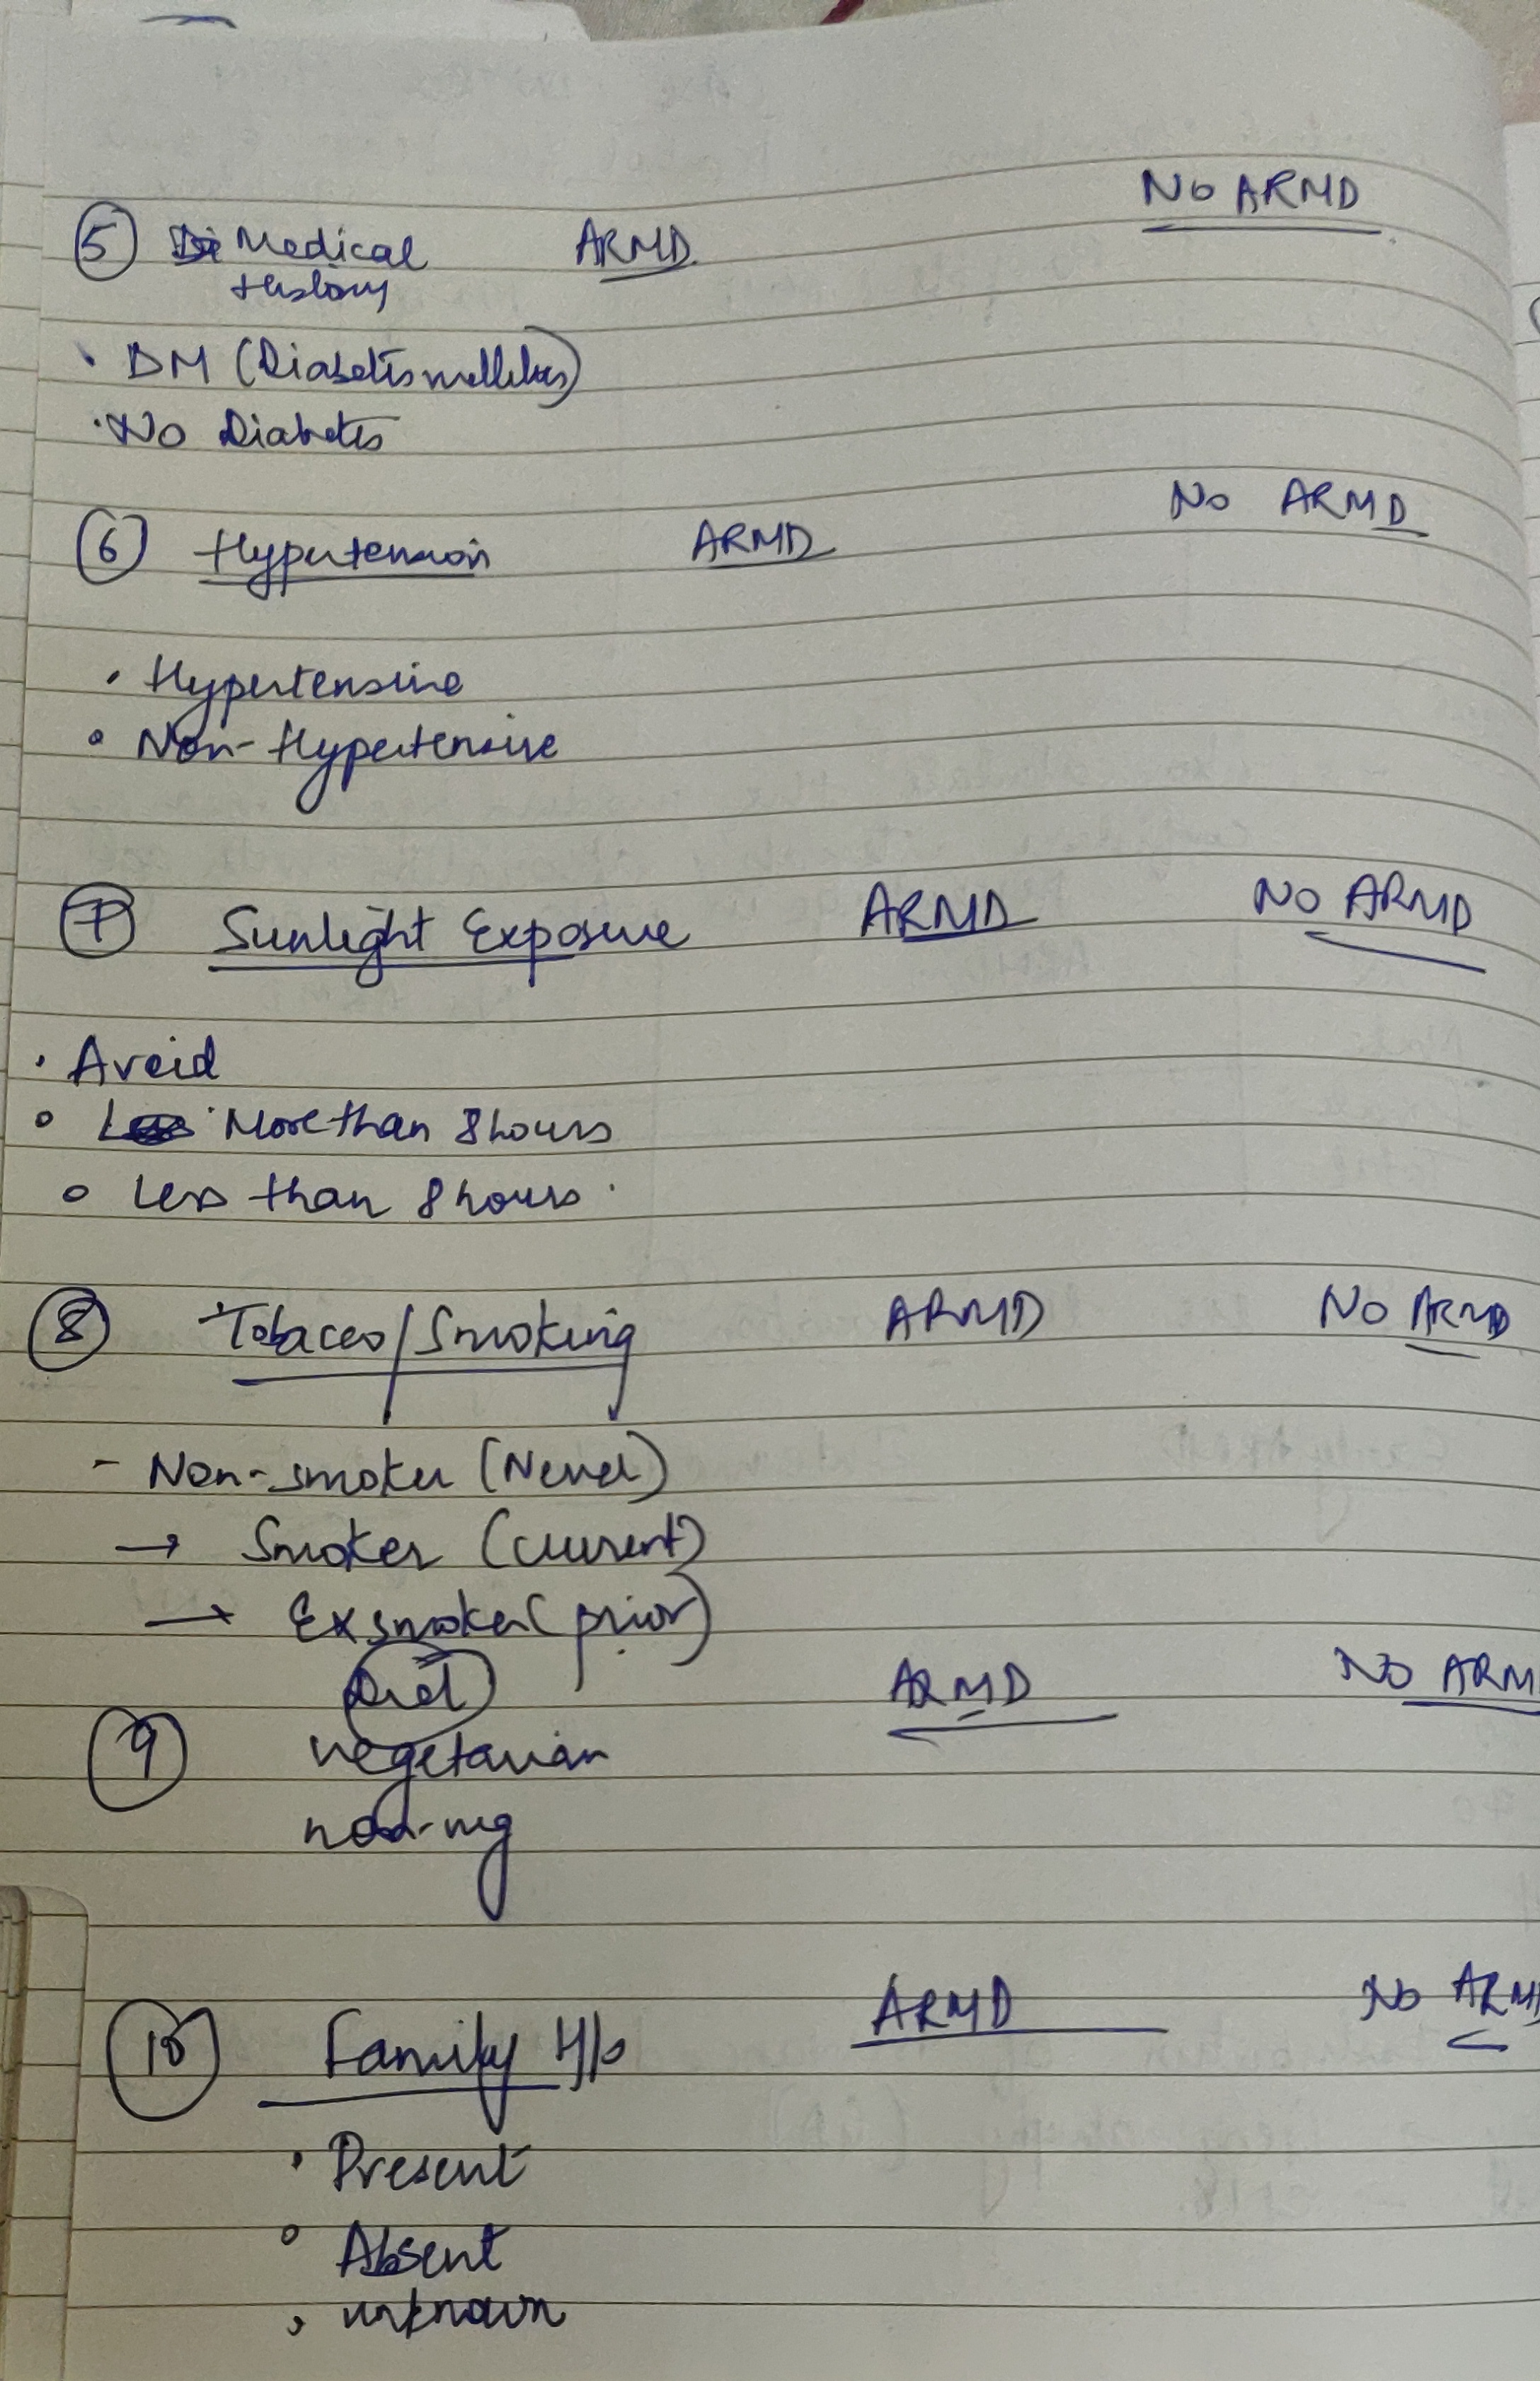 No ARMD
5 Medical ARMD
History
• DM (Diabetes mellitus)
• No Diabetes
No ARMD
6 Hypertension ARMD
• Hypertensive
• Non-Hypertensive
7 Sunlight Exposure ARMD No ARMD
• Avoid
• More than 8 hours
• Less than 8 hours
8 Tobacco/Smoking ARMD No ARMD
- Non-smoker (Never)
→ Smoker (current)
→ Ex smoker (prior)
Diet ARMD No ARM
9 vegetarian
non-veg
10 Family H/o ARMD No ARM
• Present
• Absent
• unknown